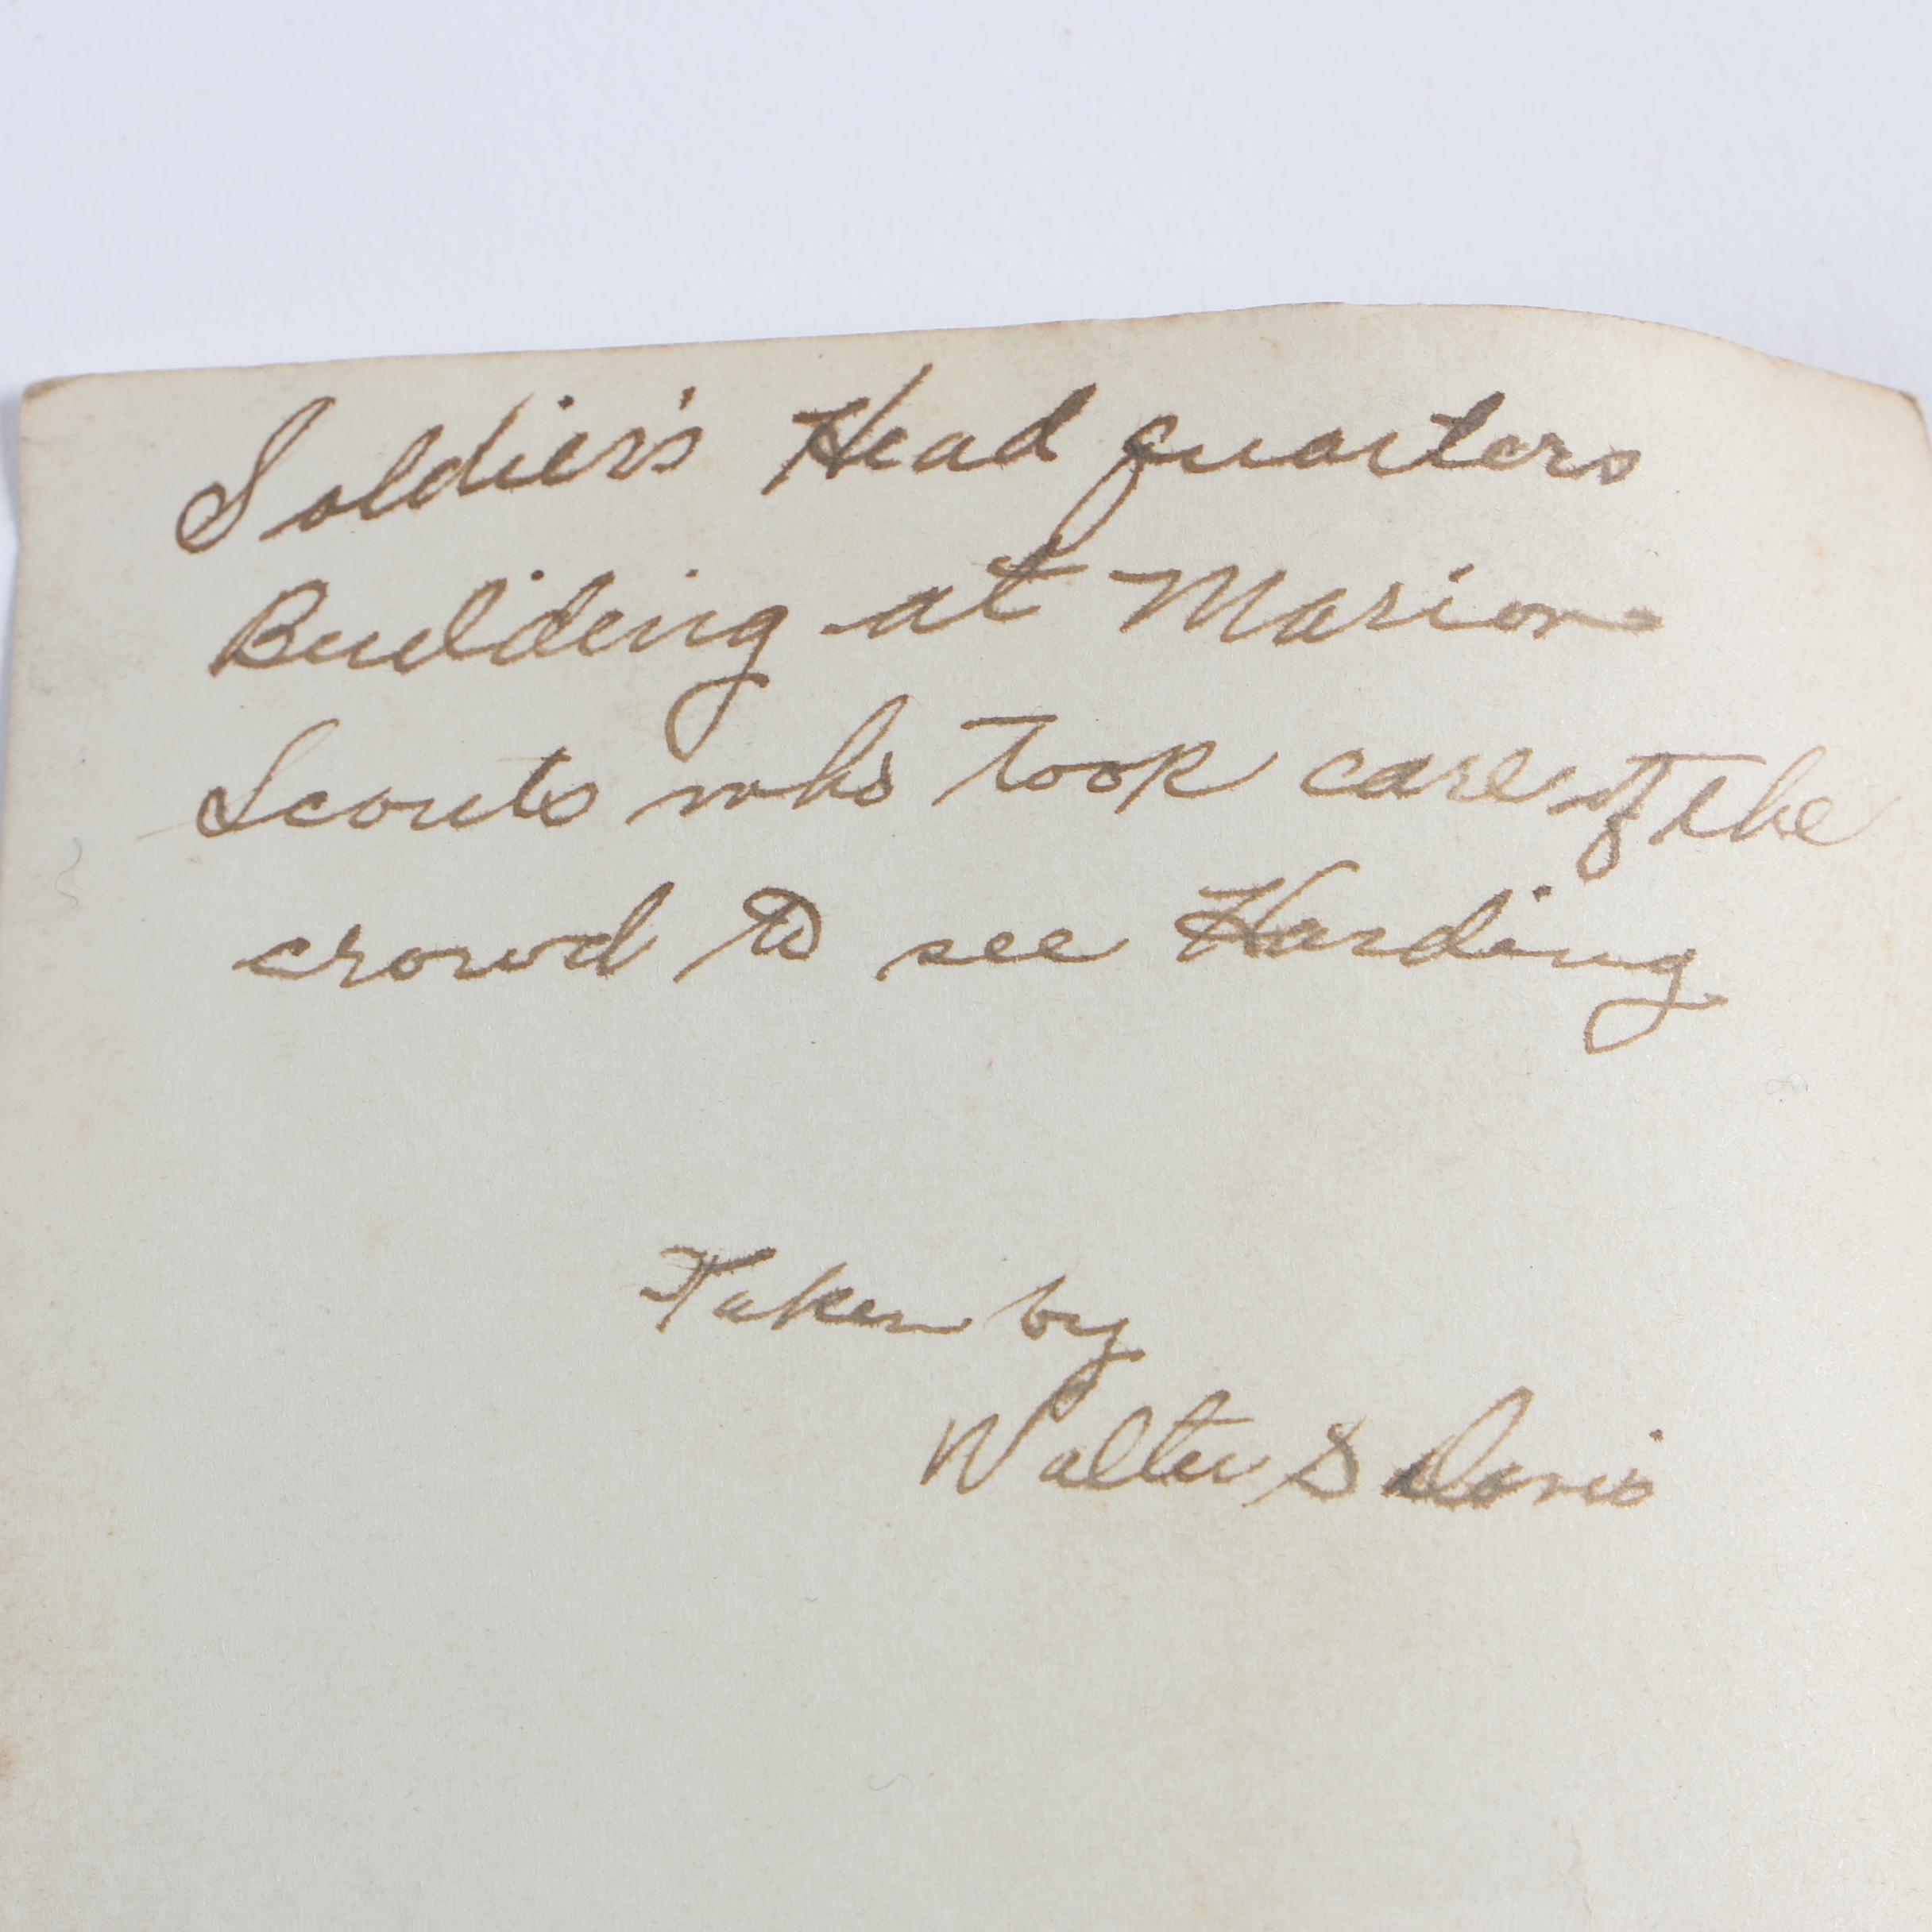 Soldier's Head quarters
Building at Marion
Scouts who took care of the
crowd to see Harding
Taken by
Walter S Davis